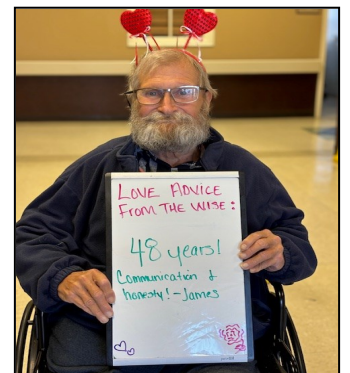 LOVE ADVICE
FROM THE WISE:
48 years!
Communication &
honesty! -James